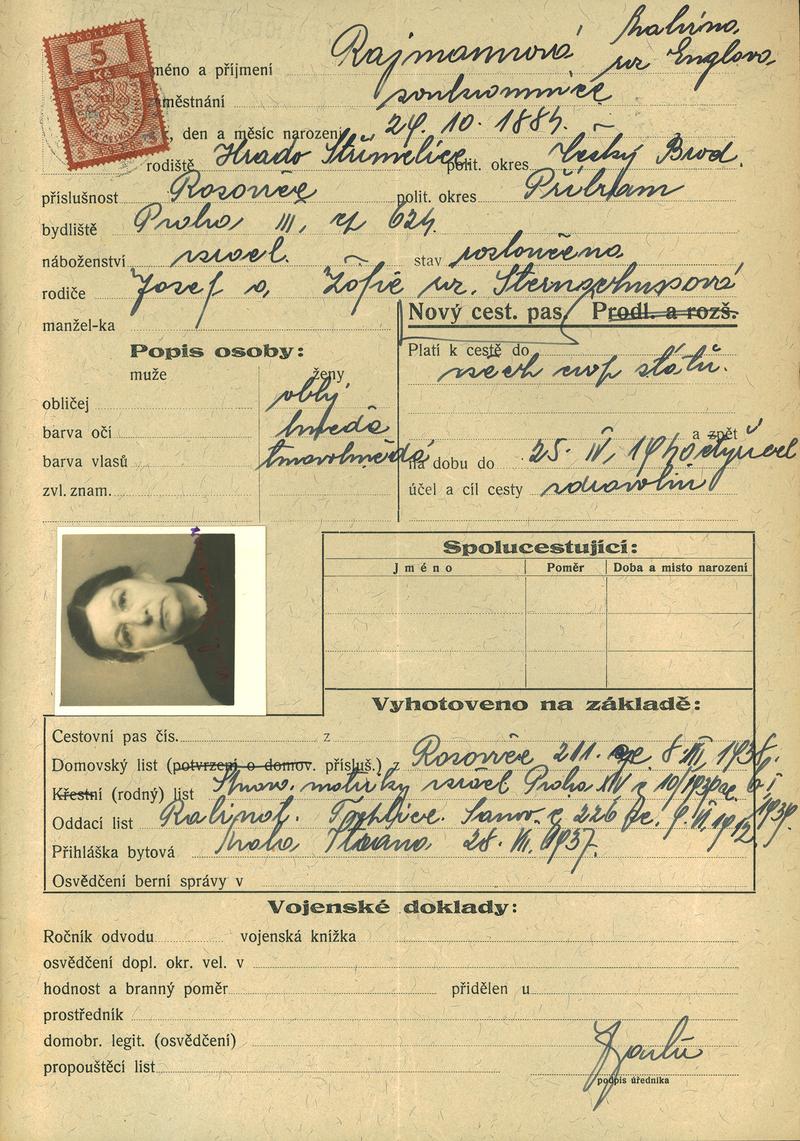 KOLEK
5
Kč
méno a příjmení Rajmannová Malvína
ur Englova
zaměstnání soukromnice
den a měsíc narození 29. 10. 1884.
rodiště Hrado Střimelice polit. okres Český Brod.
příslušnost Rosovice polit. okres Příbram
bydliště Praha III, čp 624.
náboženství israel. stav rozloučena
rodiče Josef a Žofie ur.
manžel-ka
Nový cest. pas, Prodl. a rozš.
Popis osoby:
muže ženy
Platí k cestě do
všech evop států.
obličej oblý
barva očí hnedá
a zpět
barva vlasů tmavohnědá
na dobu do 25. IV, 1940
zvl. znam.
účel a cíl cesty zdravotní
Spolucestující:
Jméno Poměr Doba a místo narození
Vyhotoveno na základě:
Cestovní pas čís. z
Domovský list (potvrzení o domov. přísluš.) z Rosovice 211. 8. III, 1938.
Křestní (rodný) list matriky israel Praha XIV 10/1939 6 I 1939.
Oddací list c 226 9. VI, 1912
Přihláška bytová 28. VII. 1937.
Osvědčení berní správy v
Vojenské doklady:
Ročník odvodu vojenská knížka
osvědčení dopl. okr. vel. v
hodnost a branný poměr přidělen u
prostředník
domobr. legit. (osvědčení)
propouštěcí list
podpis úředníka